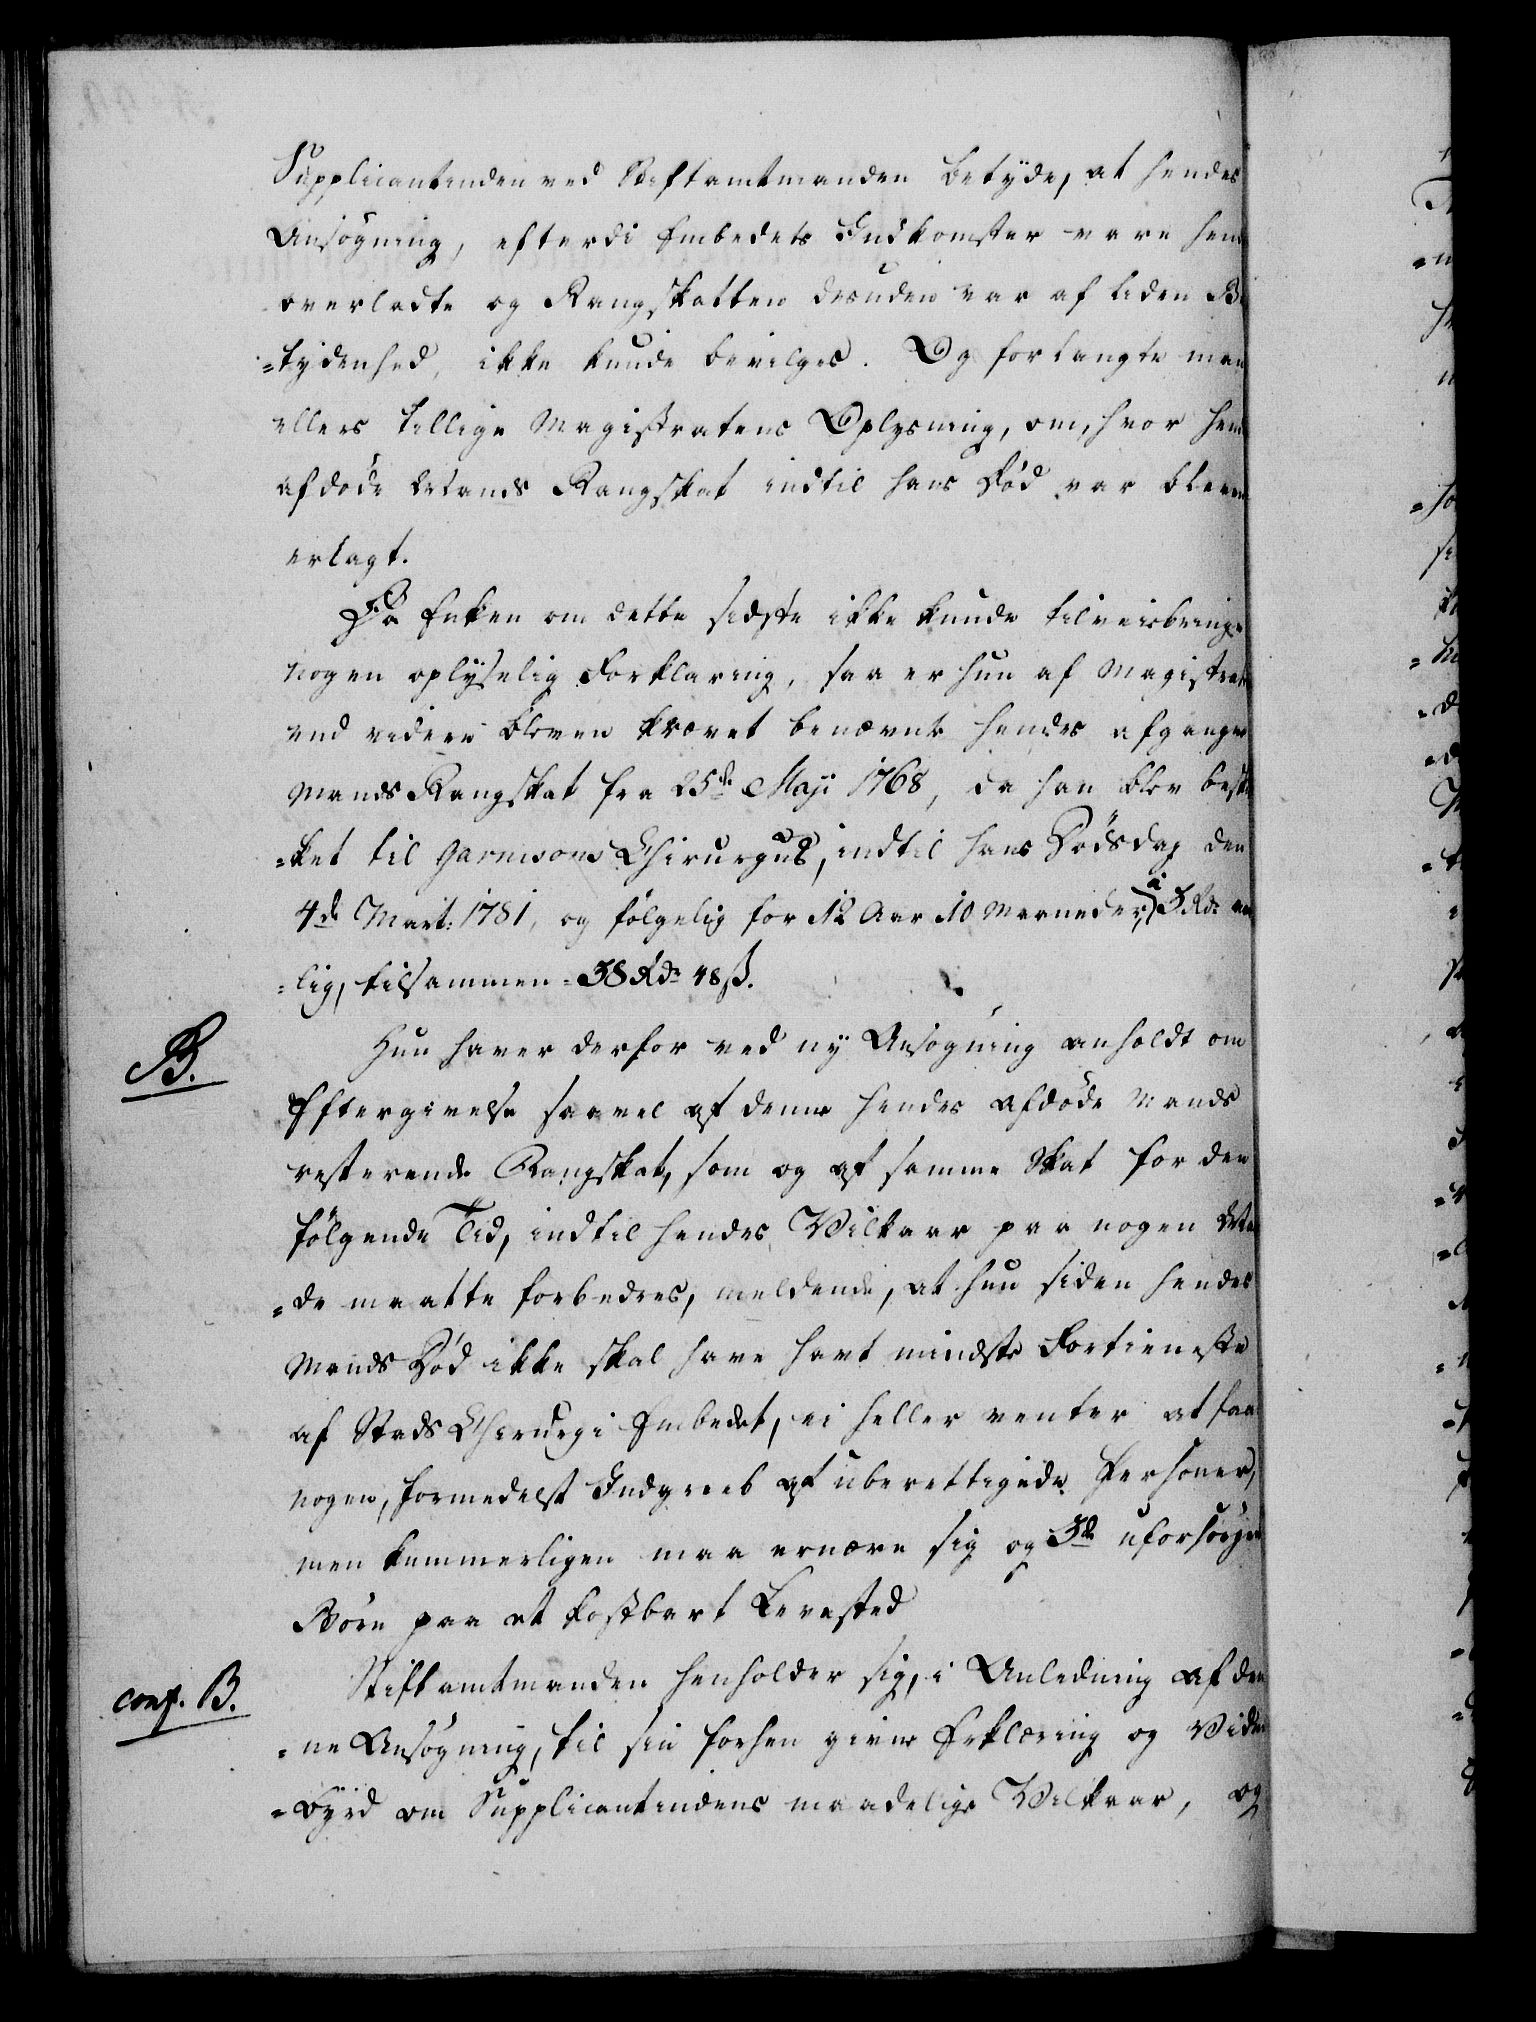 Supplicantinden ved Stiftamtmanden betyde, at hendes
Ansøgning, efterdi Embedets Indkomster vare hende
overladte og Rangskatten desuden var af liden Be
=tydenhed, ikke kunde bevilges. Og forlangte man
ellers tillige Magistratens Oplysning, om, hvor hendes
afdøde Mands Rangskat indtil hans Død var bleven
erlagt.
Da Enken om dette sidste ikke kunde tilveiebringe
nogen oplyselig Forklaring, saa er hun af Magistraten
end videre bleven krævet benævnte hendes afgangne
Mands Rangskat fra 25de Maji 1768, da han blev beskik
=ket til Garnisons Chirurgus, indtil hans Dødsdag den
4de Mart: 1781, og følgelig for 12 Aar 10 Maaneder, à 3 Rdr aar
=lig, tilsammen = 38 Rdr 48 ß.
B.
Hun haver derfor ved ny Ansøgning anholdt om
Eftergivelse saavel af denne hendes afdøde Mands
resterende Rangskat, som og af samme Skat for den
følgende Tid, indtil hendes Vilkaar paa nogen Maa
=de maatte forbedres, meldende, at hun siden hendes
Mands Død ikke skal have havt mindste Fortieneste
af Stads Chirurgi Embedet, ei heller venter at faae
nogen, formedelst Indgreeb af uberettigede Personer,
men kummerligen maa ernære sig og 3de uforsørgede
Børn paa et kostbart Levested
conf. B.
Stiftamtmanden henholder sig, i Anledning af den
=ne Ansøgning, til sin forhen givne Erklæring og Vidnes
=byrd om Supplicantindens maadelige Vilkaar, og